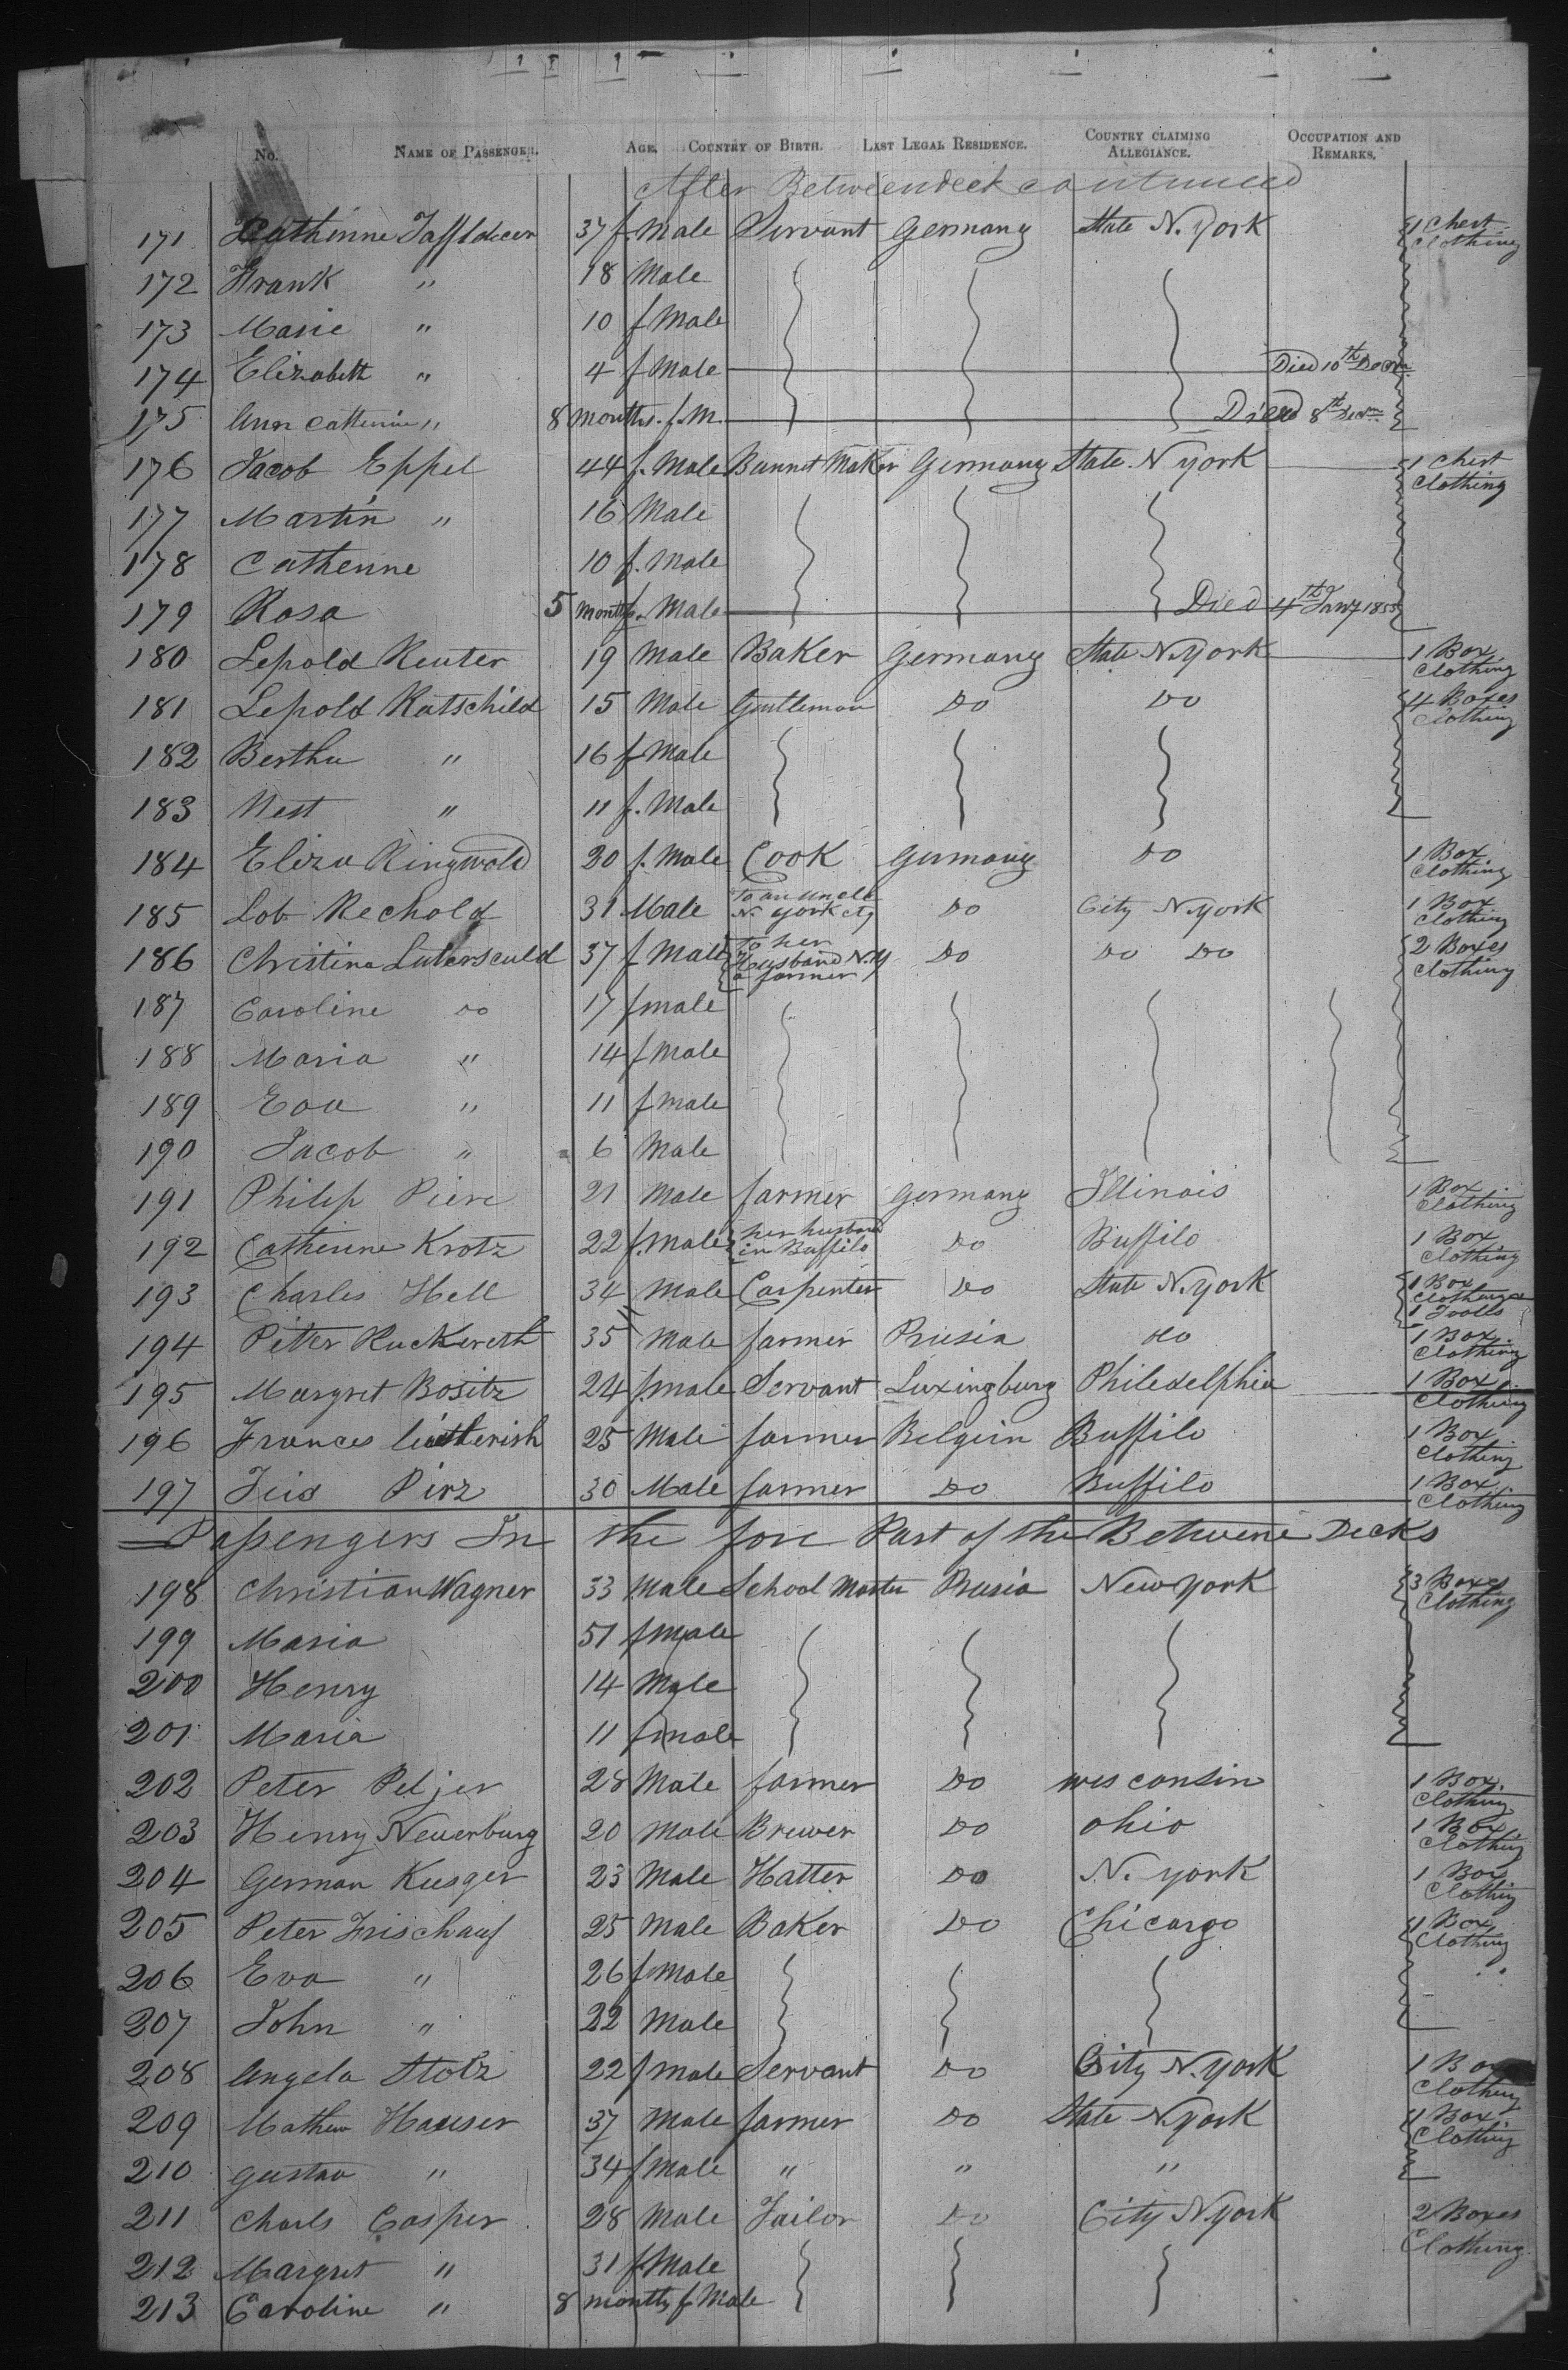 No. NAME OF PASSENGER. AGE. COUNTRY OF BIRTH. LAST LEGAL RESIDENCE. COUNTRY CLAIMING ALLEGIANCE. OCCUPATION AND REMARKS.
After Betweendeck continued
171 Catherine 37 f. Male Servant Germany State N. York 1 Chest Clothing
172 Frank " 18 Male
173 Marie " 10 f Male
174 Elizabeth " 4 f Male Died 10th Decm
175 Ann Catherine " 8 months. f. M. Died 8th Decm
176 Jacob Eppel 44 f. Male Bunnet Maker Germany State N York 1 Chest Clothing
177 Martin " 16 Male
178 Catherine 10 f. Male
179 Rosa 5 months f. Male Died 4th Jany 1855
180 Lepold Reuter 19 Male Baker Germany State N. York 1 Box Clothing
181 Lepold Ratschild 15 Male Gentleman Do Do 4 Boxes Clothing
182 Bertha " 16 f Male
183 Nest " 11 f. Male
184 Eliza Ringwold 20 f. Male Cook Germany Do 1 Box Clothing
185 Lob Rechold 31 Male To an Uncle N. York cty Do City N. York 1 Box Clothing
186 Christina Lutersculd 37 f Male To her Husband N. Y a farmer Do Do Do 2 Boxes Clothing
187 Caroline do 17 f male
188 Maria " 14 f Male
189 Eva " 11 f male
190 Jacob " 6 Male
191 Philip Piere 21 Male farmer Germany Illinois 1 Box Clothing
192 Catherine Krotz 22 f. Male her husband in Buffilo Do Buffilo 1 Box Clothing
193 Charles Hell 34 Male Carpenter Do State N. York 1 Box Clothing & 1 Tools
194 Peter Ruckereth 35 Male farmer Prusia do 1 Box Clothing
195 Margret Bositz 24 f. male Servant Luxingburg Philedelphia 1 Box Clothing
196 Frances 25 Male farmer Belgim Buffilo 1 Box Clothing
197 Pirz 30 Male farmer Do Buffilo 1 Box Clothing
Passengers In the fore Part of the Betwene Decks
198 Christian Wagner 33 Male School Master Prusia New York 3 Boxes Clothing
199 Maria 51 f male
200 Henry 14 Male
201 Maria 11 f male
202 Peter Peljer 28 Male farmer Do wisconsin 1 Box Clothing
203 Henry Neuerburg 20 Male Brewer Do ohio 1 Box Clothing
204 German Kusger 23 Male Hatter Do N. york 1 Box Clothing
205 Peter Frischauf 25 Male Baker Do Chicargo 1 Box Clothing
206 Eva " 26 f Male
207 John " 22 Male
208 Angela Stolz 22 f male Servant Do City N. York 1 Box Clothing
209 Mathew Hauser 37 Male farmer Do State N. York 1 Box Clothing
210 gustav " 34 f Male " " "
211 Charls Casper 28 Male Tailor Do City N York 2 Boxes Clothing
212 Margret " 31 f. Male
213 Caroline " 8 months f Male